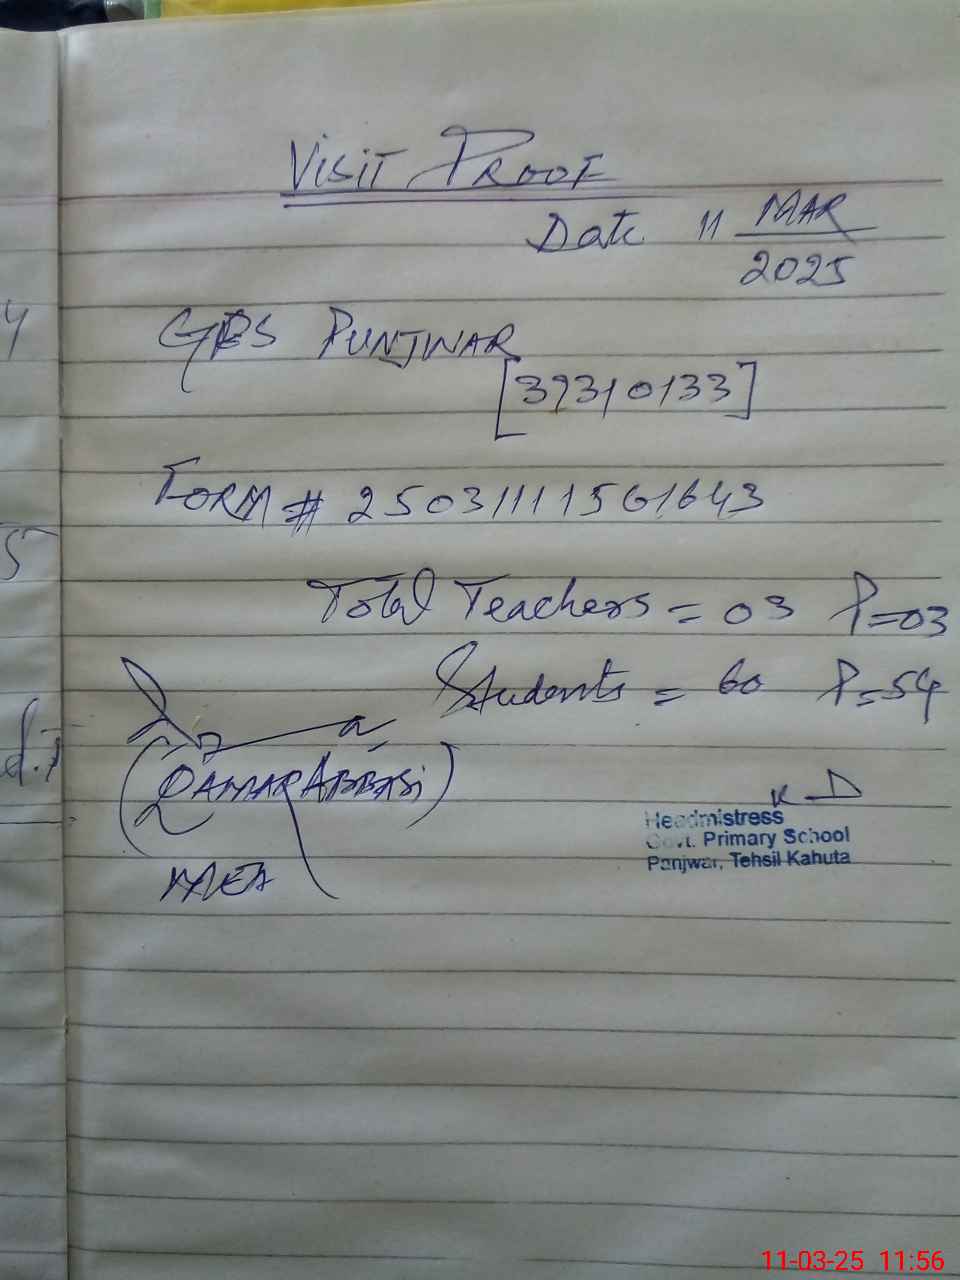 VISIT PROOF
Date 11 MAR
2025
GPS PUNJWAR
[39310133]
FORM # 25031111561643
Total Teachers = 03 P=03
Students = 60 P=54
(QAMAR ABBASI)
MEA
Headmistress
Govt. Primary School
Panjwar, Tehsil Kahuta
4
5
11-03-25 11:56